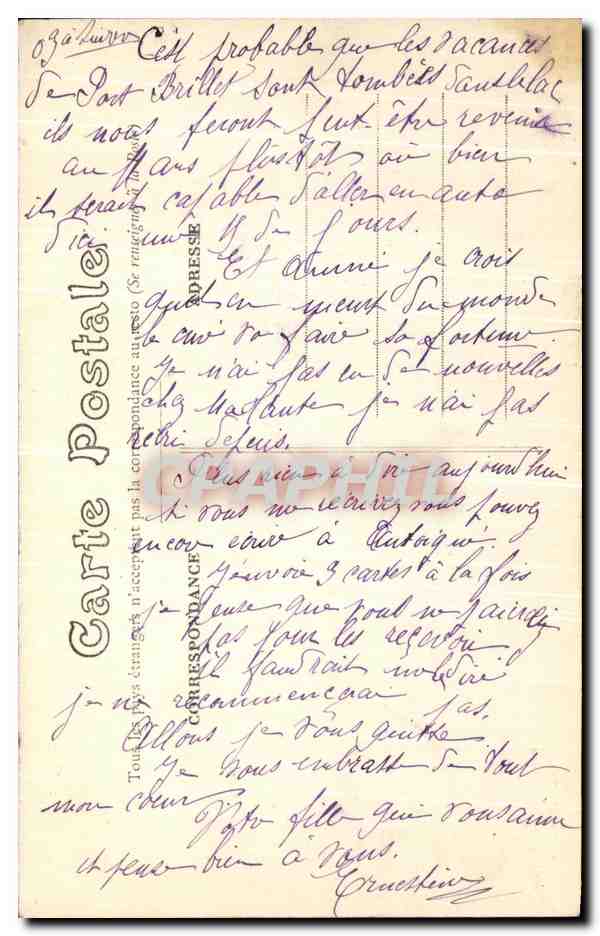 C'est probable que les vacances
de Port Brillet sont tombées dans le lac
ils nous feront peut-être revenir
au Mans plustôt où bien
il serait capable d'aller en auto
d'ici une 15 de jours.
Et je crois
meurt du monde
le curé va faire sa fortune.
Je n'ai pas eu de nouvelles
chez Ma tante je n'ai pas
écri depuis.
Plus rien à dire aujourd'hui
si vous me récrivez vous pouvez
encore écrire à Antoigné.
J'envoie 3 cartes à la fois
je pense que vous ne
pas pour les reçevoir
il faudrait me le dire
je ny recommencerai pas.
Allons je vous quitte
Je vous embrasse de tout
mon cœur
Votre fille qui vous aime
et pense bien à vous.
Ernestine
Carte Postale
Tous les pays étrangers n'acceptent pas la correspondance au recto (Se renseigner à la Poste)
CORRESPONDANCE
ADRESSE
CPAPHIL